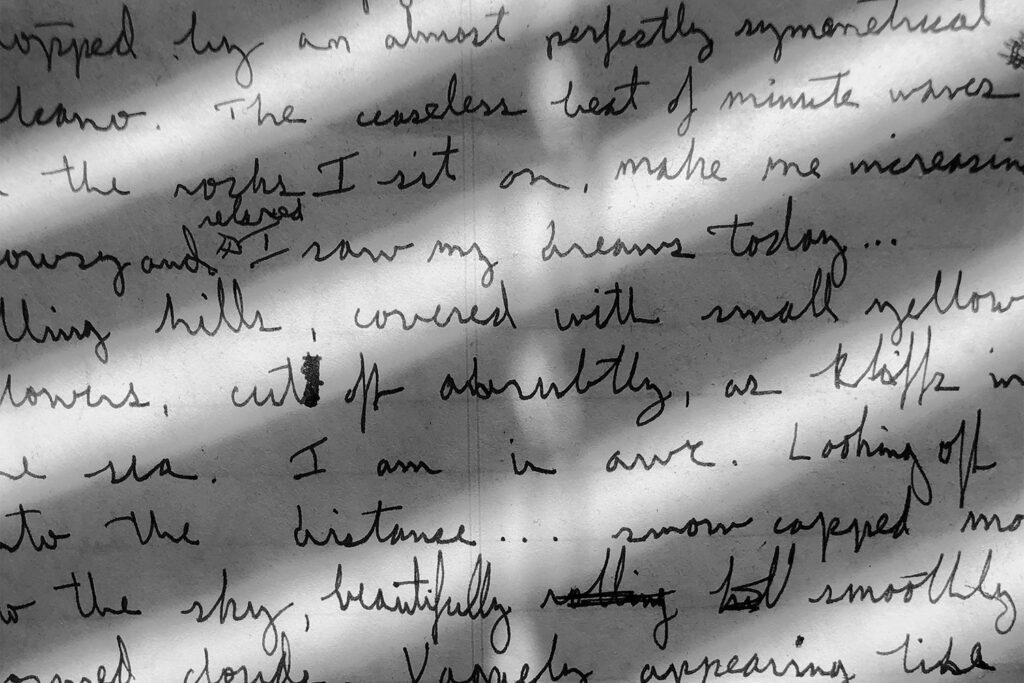 opped by an almost perfectly symmetrical
lcano. The ceaseless beat of minute waves
the rocks I sit on, make me increasin
relaxed
owsy and I saw my dreams today...
lling hills, covered with small yellow
lowers, cut off abrubtly, as kliffs in
e sea. I am in awe. Looking off
nto the distance... snow capped mo
the sky, beautifully rolling but smoothly
ormed clouds. Vaguely appearing like